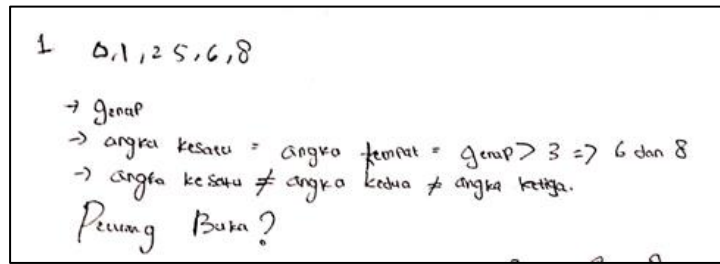 1 0,1,2 5,6,8
→ genap
→ angka kesatu = angka keempat = genap > 3 => 6 dan 8
→ angka kesatu ≠ angka kedua ≠ angka ketiga.
Peluang Buka?